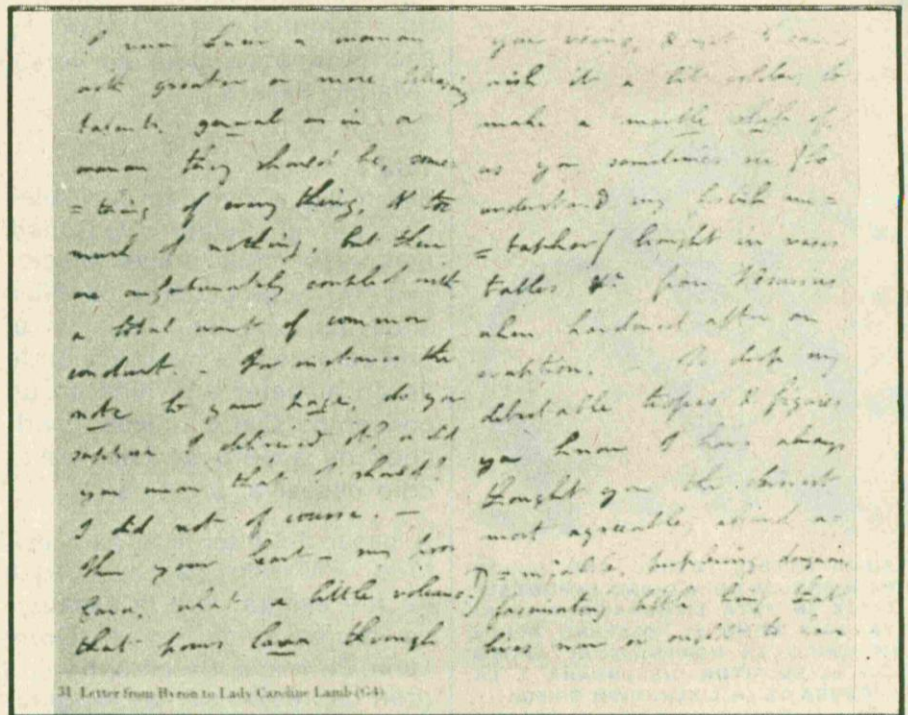 I never knew a woman
with greater or more pleasing
talents, general as in a
woman they should be, some=
=thing of every thing, & too
much of nothing, but these
are unfortunately coupled with
a total want of common
conduct. - For instance the
note to your page, do you
suppose I delivered it? or did
you mean that I should?
I did not of course. -
Then your heart - my poor
Caro, what a little volcano!
that pours lava through
your veins, & yet I cannot
wish it a bit colder, to
make a marble slab of,
as you sometimes see (to
understand my foolish me=
=taphor) brought in vases
tables &c from Vesuvius
when hardened after an
eruption. - To drop my
detestable tropes & figures
you know I have always
thought you the cleverest
most agreeable, absurd a=
=miable, perplexing, dangerous
fascinating little being that
lives now or ought to have
31 Letter from Byron to Lady Caroline Lamb (G4)